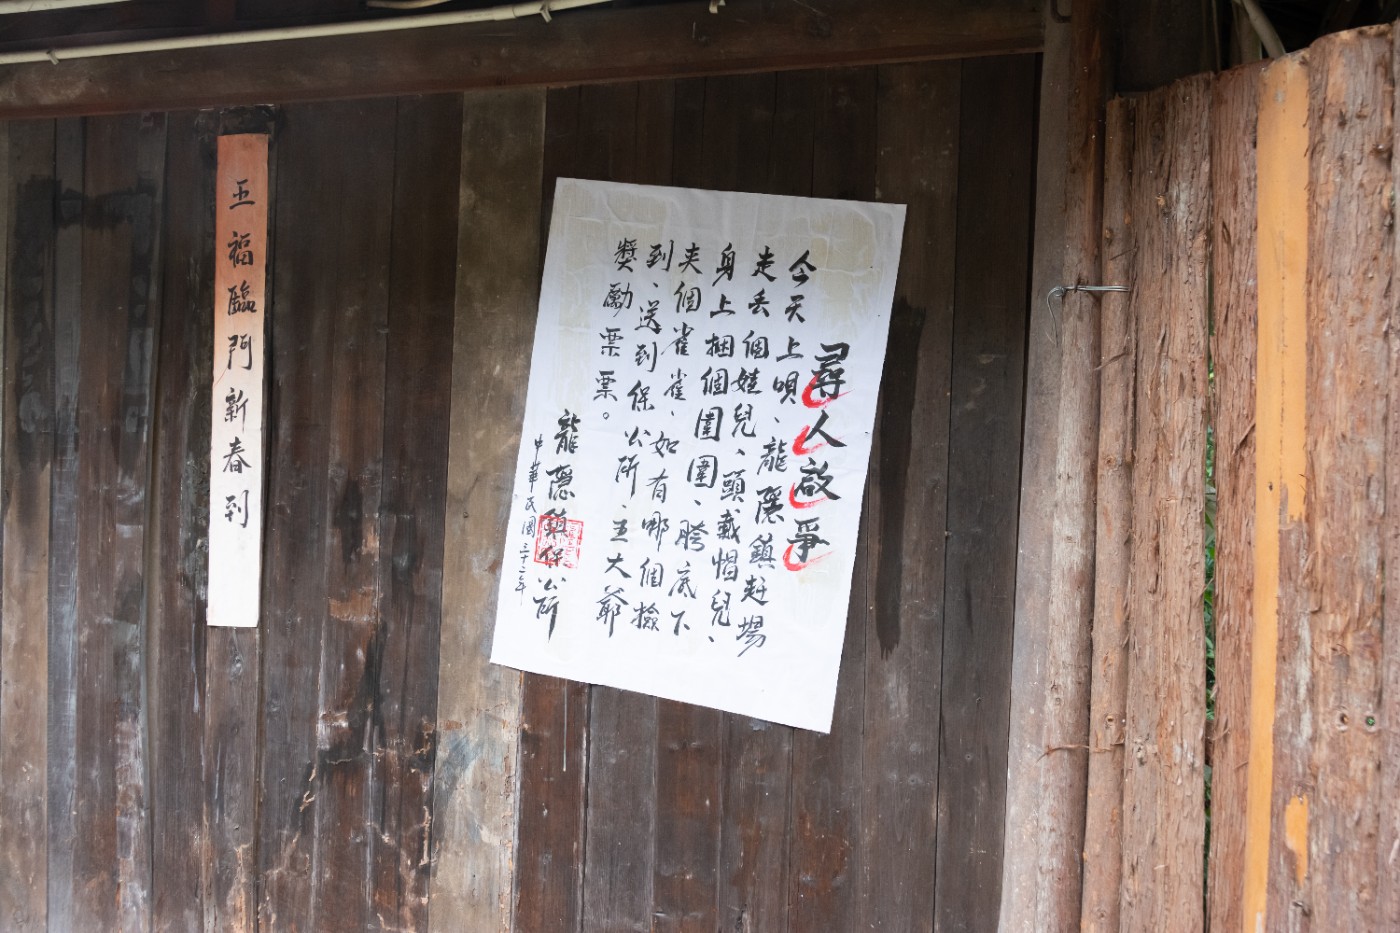 尋人啟爭
今天上唄、龍隱鎮赶場
走丢個娃兒、頭戴帽兒、
身上捆個圍圍、胯底下
夾個雀雀、如有哪個撿
到、送到保公所、王大爺
獎勵票票。
龍隱鎮保公所
中華民國三十二年
五福臨門新春到